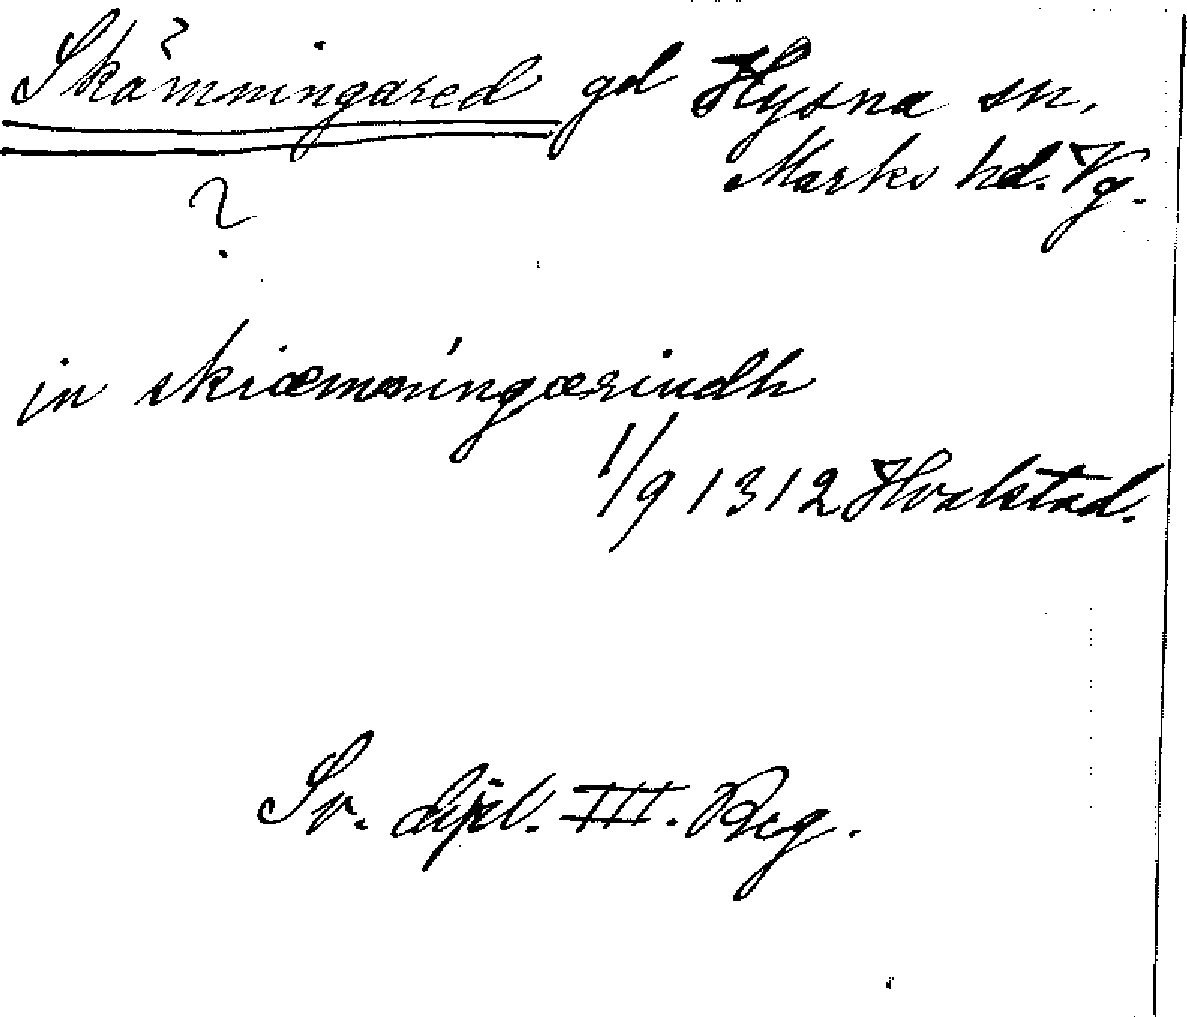 Skämmingared gd Hyssna sn.
Marks hd. Vg.
?
in skiæmmingærindh
1/9 1312 Hvalstad.
Sv. dipl. III. Reg.